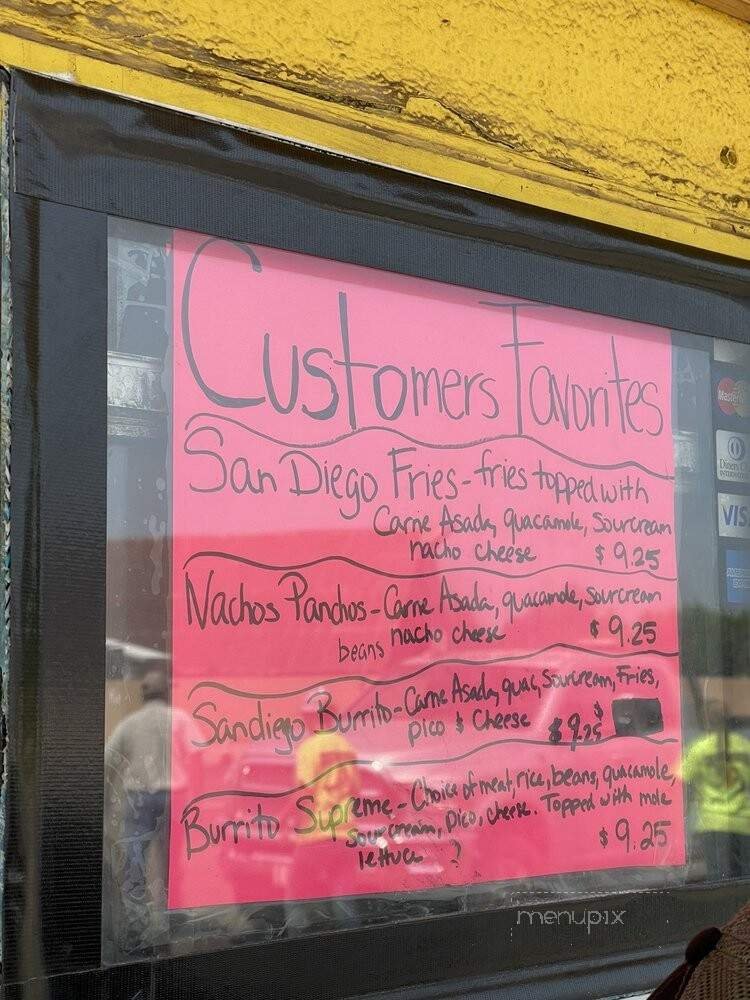 Customers Favorites
San Diego Fries - fries topped with
Carne Asada, quacamole, Sourcream
nacho cheese $ 9.25
Nachos Panchos - Carne Asada, quacamole, sourcream
beans nacho cheese $ 9.25
Sandiego Burrito - Carne Asada, guac, Sourcream, Fries,
pico & Cheese $ 9.25 $
Burrito Supreme - Choice of meat, rice, beans, quacamole,
sourcream, pico, cheese. Topped with mole
lettuce ? $ 9.25
Master
Diners C
VIS
menupix